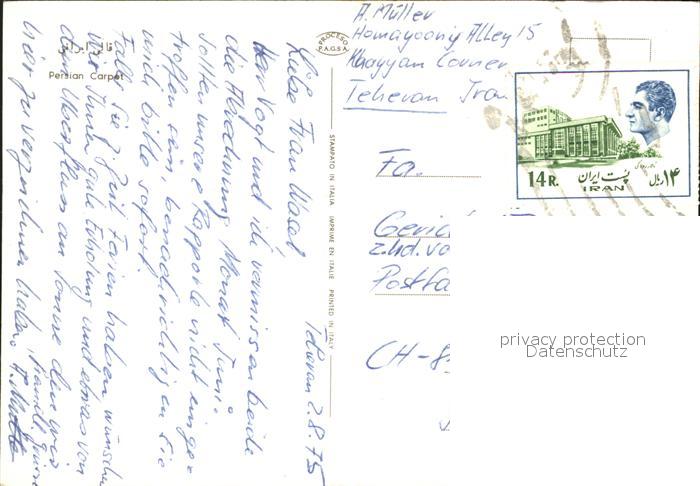 قالی ایرانی
Persian Carpet
PROCESO
P.A.G.S.A.
STAMPATO IN ITALIA IMPRIMÉ EN ITALIE PRINTED IN ITALY
Teheran 2.8.75
Liebe Frau Waeel
Herr Vogt und ich vermissen beide
die Abrechnung Monat Juni.
Sollten unsere Rapporte nicht einge-
troffen sein, benachrichtigen Sie
uns bitte sofort.
Falls Sie z. Zeit Ferien haben wünschen
wir Ihnen gute Erholung und etwas von
dem Überfluss an Sonne den wir
hier zu verzeichnen haben.
A. Müller
A. Müller
Homayoony Alley 15
Khayyam Corner
Teheran Iran
Fa.
z.Hd. vo
Postfa
CH-8
14 R.
پست ایران
۱۴ ریال
IRAN
privacy protection
Datenschutz